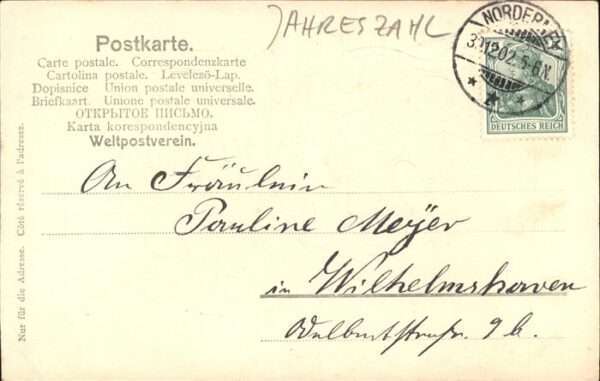 JAHRESZAHL
Postkarte.
Carte postale. Correspondenzkarte
Cartolina postale. Levelező-Lap.
Dopisnice Union postale universelle.
Briefkaart. Unione postale universale.
ОТКРЫТОЕ ПИСЬМО.
Karta korespondencyjna
Weltpostverein.
NORDERNEY
30.12.02. 5-6 N.
DEUTSCHES REICH
An Fräulein
Pauline Meÿer
in Wilhelmshaven
Adalbertstraße. 9 b.
Nur für die Adresse. Côté réservé à l'adresse.